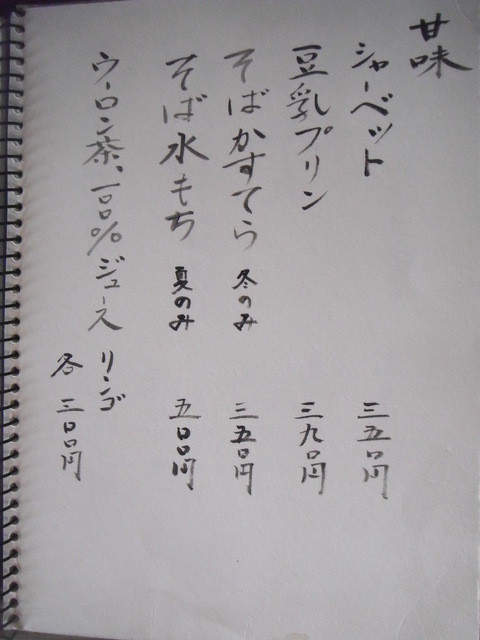 甘味
シャーベット 三五〇円
豆乳プリン 三九〇円
そばかすてら 冬のみ 三五〇円
そば水もち 夏のみ 五〇〇円
ウーロン茶、一〇〇%ジュース リンゴ
各 三〇〇円